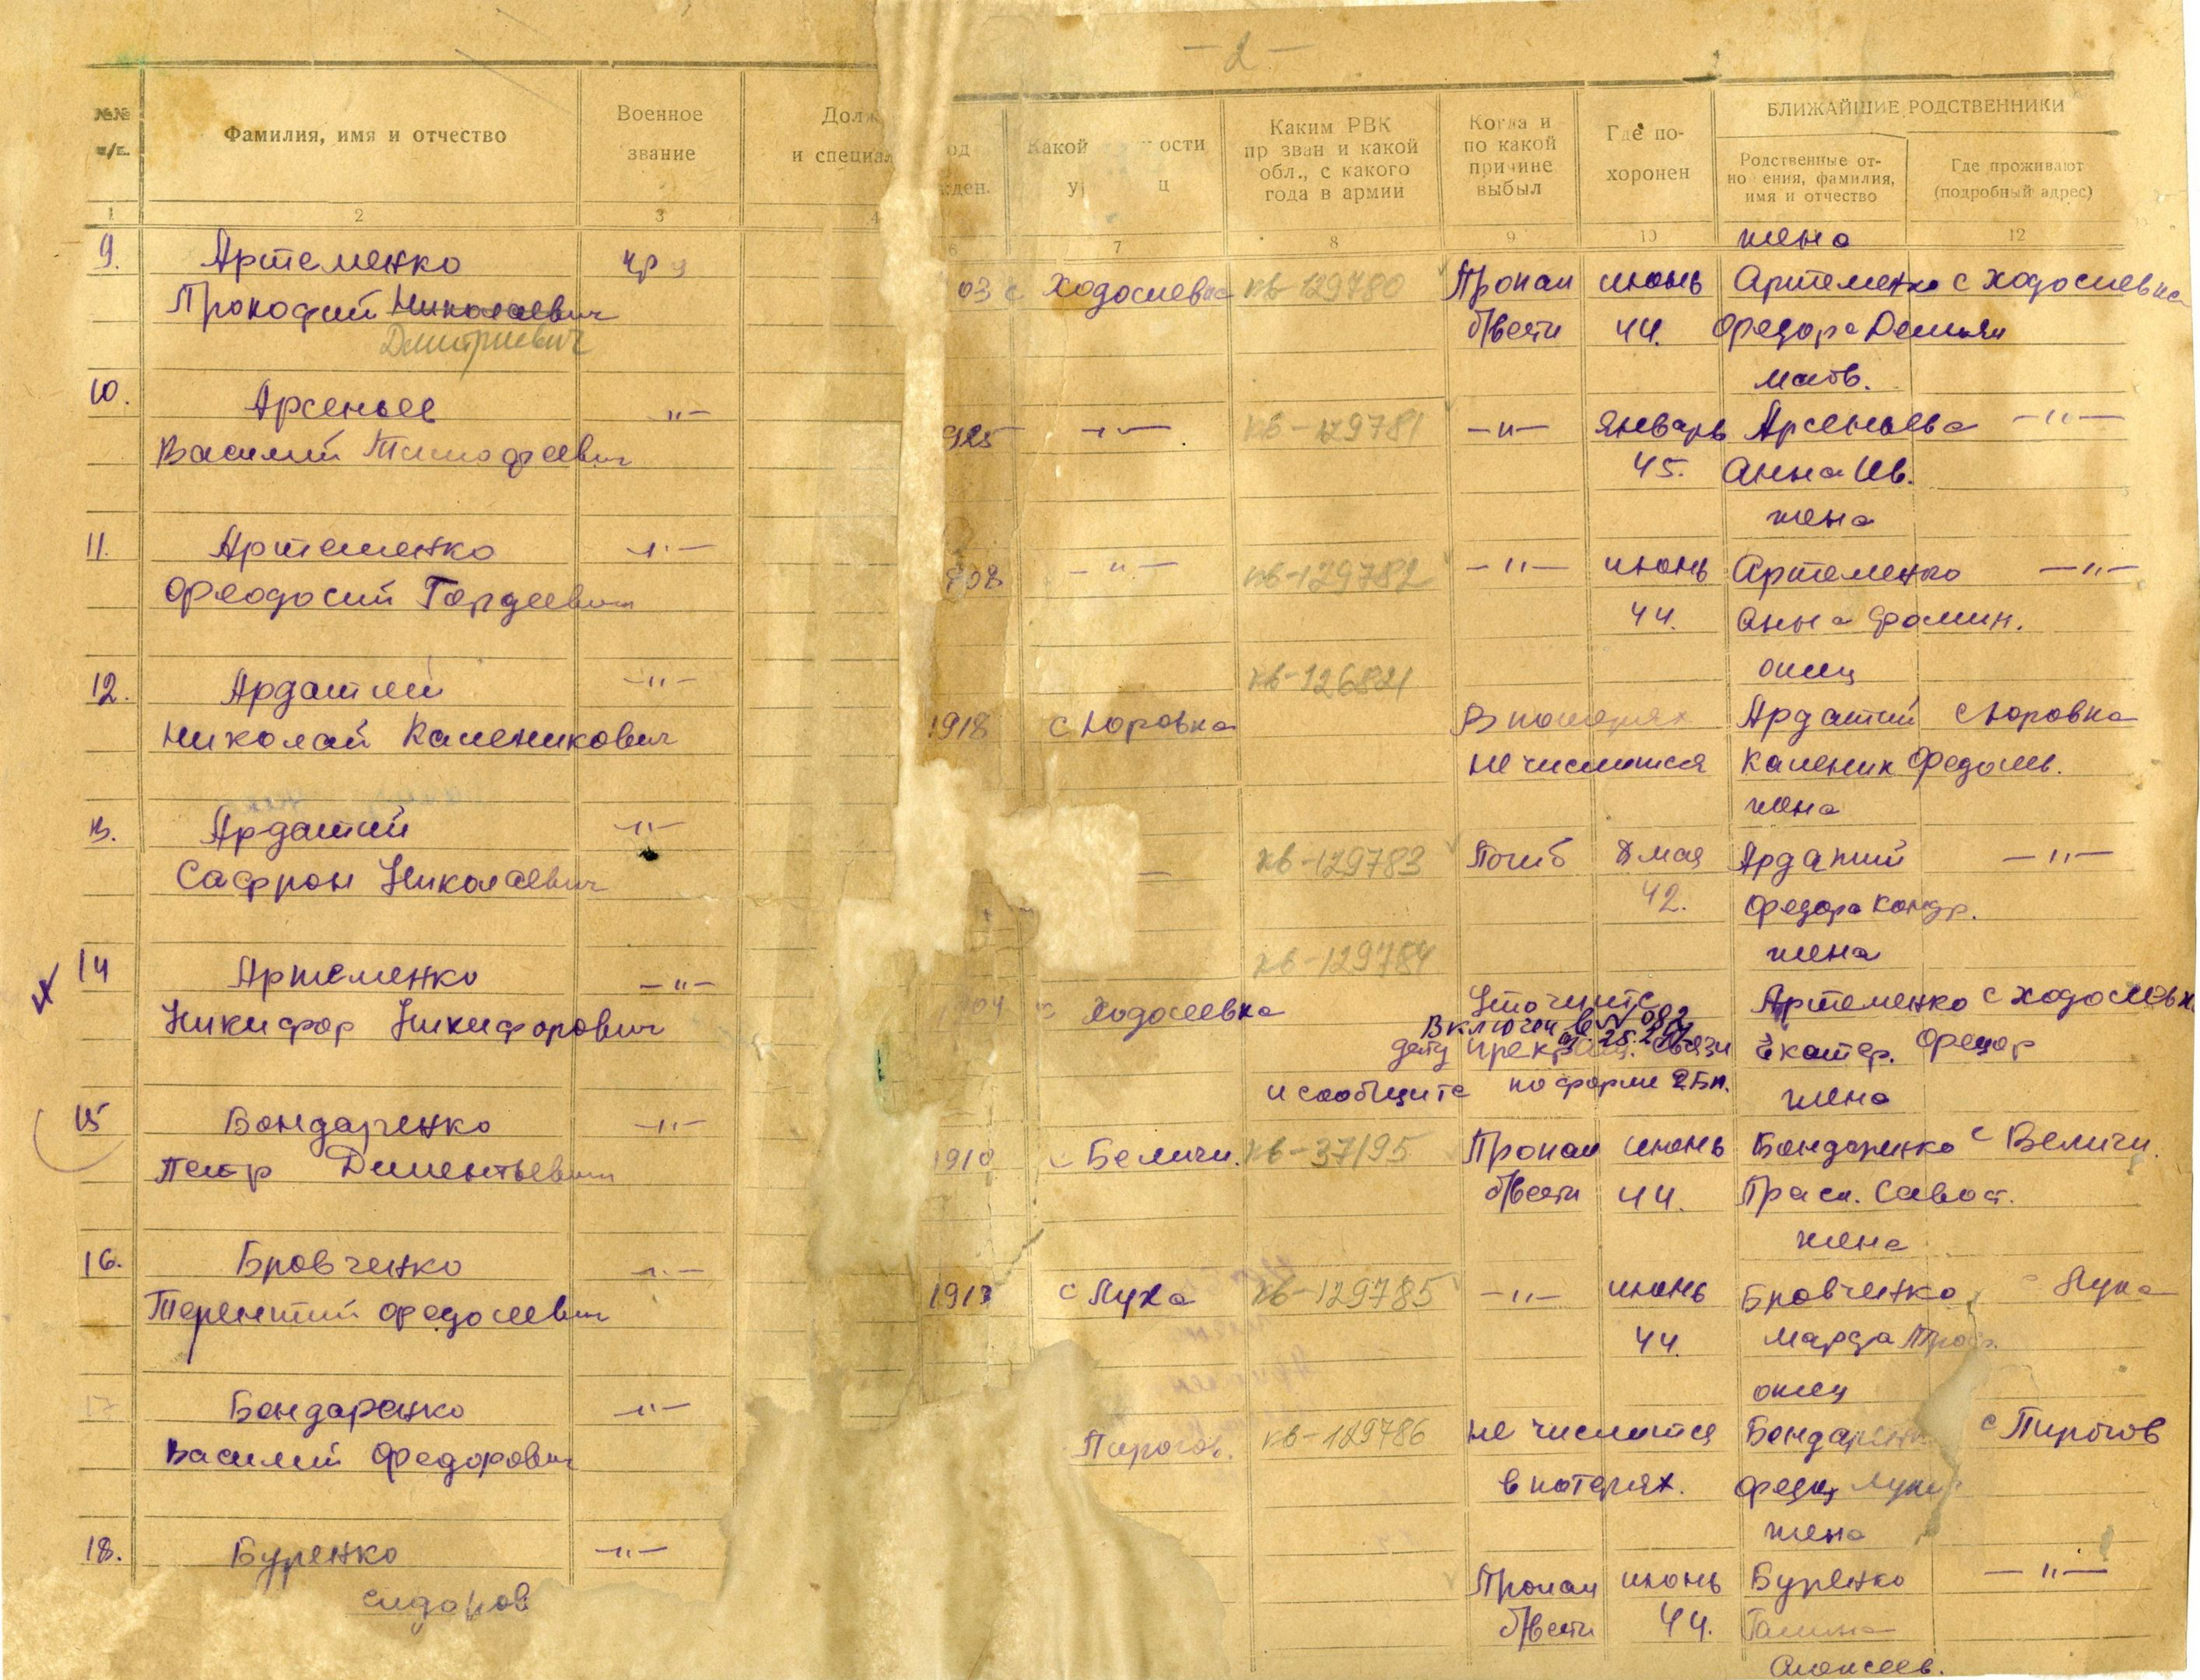 - 2 -
№№ п/п.
Фамилия, имя и отчество
Военное звание
Долж
и специал
од
жден.
Какой ости
у ц
Каким РВК
пр зван и какой
обл., с какого
года в армии
Когда и
по какой
причине
выбыл
Где по-
хоронен
БЛИЖАЙШИЕ РОДСТВЕННИКИ
Родственные от-
но ения, фамилия,
имя и отчество
Где проживают
(подробный адрес)
1 2 3 4 6 7 8 9 10 12
жена
9. Артеменко кр 03 с Ходосиевка кв-129780 Пропал июнь Артеменко с Ходосиевка
Прокофий Николаевич б/вести 44. Федора Демьян
Дмитриевич
мать.
10. Арсеньев -"- 925 -"- кв-129781 -"- январь Арсеньева -"-
Василий Тимофеевич 45. Анна Ив.
жена
11. Артеменко -"- 908 -"- кв-129782 -"- июнь Артеменко -"-
Феодосий Гордеевич 44. Анна Фомин.
отец
12. Ардатий -"- кв-126821
Николай Каленикович 1918 с Юровка В потерях Ардатий с Юровка
не числится Каленик Федосев.
жена
13. Ардатий -"- кв-129783 Погиб 8 мая Ардатий -"-
Сафрон Николаевич 42. Федора Кондр.
жена
14 Артеменко -"- кв-129784
Никифор Никифорович 904 с Ходосеевка Уточните Артеменко с Ходосиевк
Включен в № 082
дату прекращ. связи Екатер. Федор
и сообщите по форме 2БП.
жена
15 Бондаренко -"- 1910 с Беличи. кв-37195 Пропал июнь Бондаренко с Беличи.
Петр Дементьевич б/вести 44. Праск. Савост.
жена
16. Бровченко -"- 1913 с Лука кв-129785 -"- июнь Бровченко с Лука
Терентий Федосеевич 44. Марфа Троф.
отец
17 Бондаренко -"- Пирогов. кв-129786 не числится Бондаренк с Пирогов
Василий Федорович в потерях. Федор Лук
жена
18. Буренко -"- Пропал июнь Буренко -"-
Сидоров б/вести 44. Галина
Алексеев.